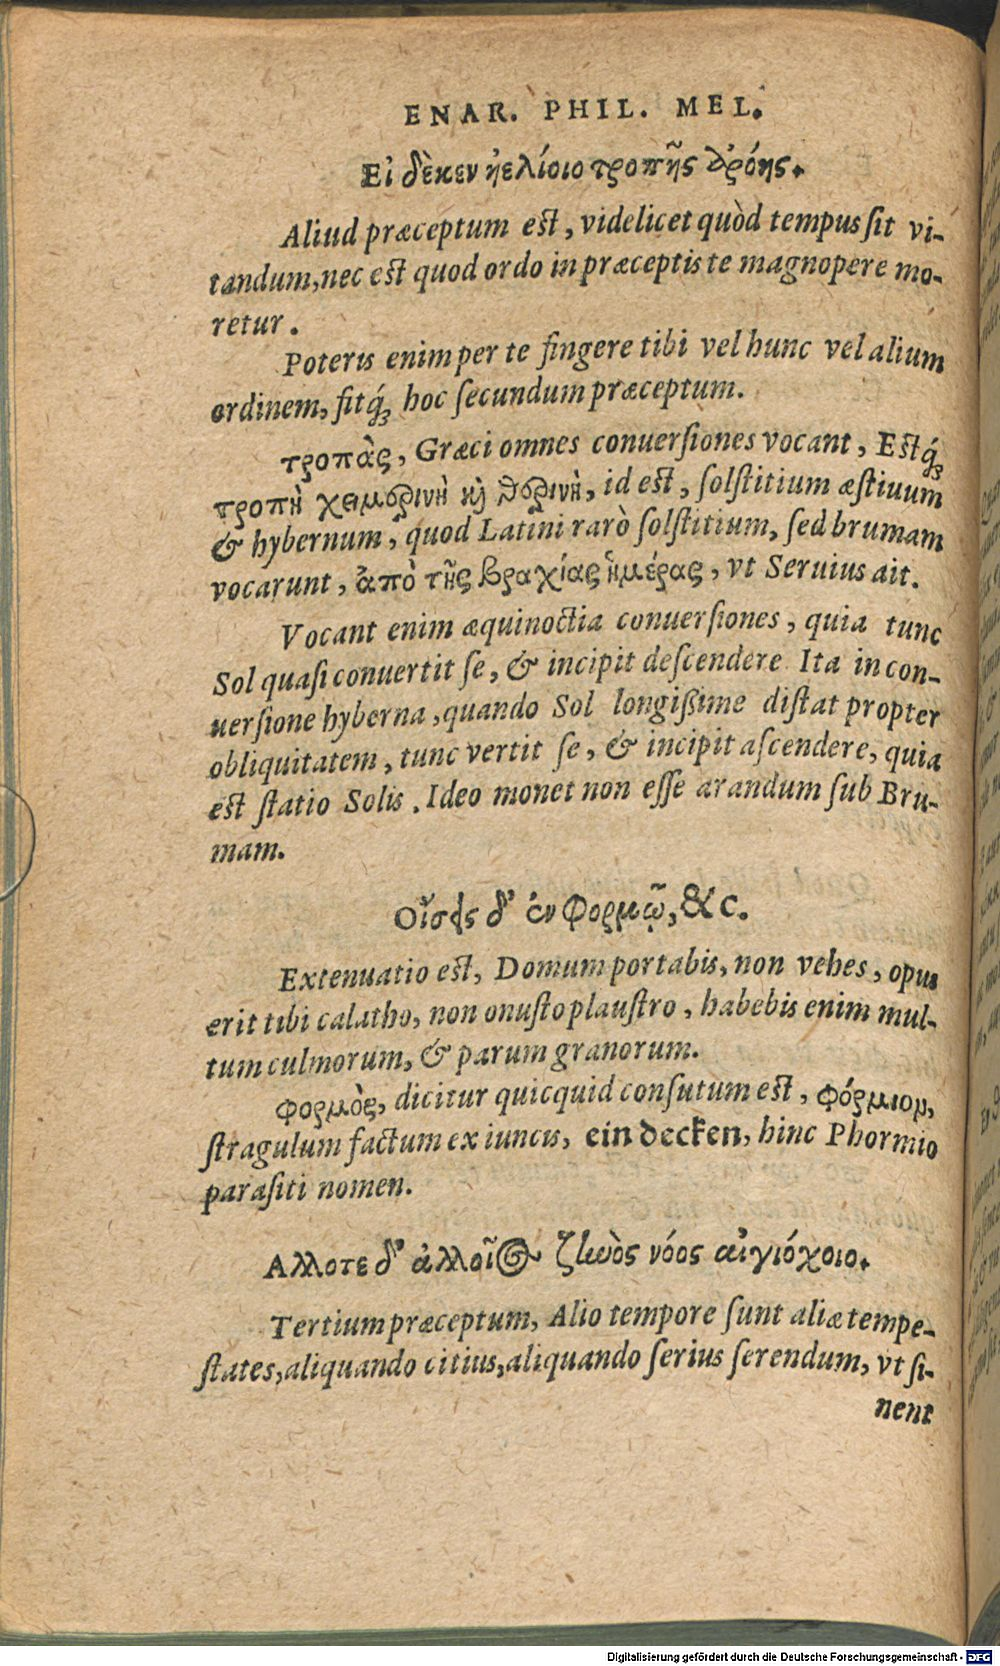 ENAR. PHIL. MEL.
Εἰ δὲκεν ἠελίοιο τροπῆς ἀρόης.
Aliud præceptum est, videlicet quòd tempus sit vi-
tandum, nec est quod ordo in præceptis te magnopere mo-
retur.
Poteris enim per te fingere tibi vel hunc vel alium
ordinem, sitq́ꝫ hoc secundum præceptum.
τροπὰς, Græci omnes conuersiones vocant, Estq́ꝫ
τροπὴ χειμερινὴ καὶ θερινὴ, id est, solstitium æstiuum
& hybernum, quod Latini rarò solstitium, sed brumam
vocarunt, ἀπὸ τῆς βραχίας ἡμέρας, vt Seruius ait.
Vocant enim æquinoctia conuersiones, quia tunc
Sol quasi conuertit se, & incipit descendere Ita in con-
uersione hyberna, quando Sol longißime distat propter
obliquitatem, tunc vertit se, & incipit ascendere, quia
est statio Solis. Ideo monet non esse arandum sub Bru-
mam.
Οἴσεις δ' ἐν φορμῷ, &c.
Extenuatio est, Domum portabis, non vehes, opus
erit tibi calatho, non onusto plaustro, habebis enim mul-
tum culmorum, & parum granorum.
φορμὸς, dicitur quicquid consutum est, φόρμιον,
stragulum factum ex iuncis, ein decken, hinc Phormio
parasiti nomen.
Αλλοτε δ' ἀλλοῖος ζηνὸς νόος αἰγιόχοιο.
Tertium præceptum, Alio tempore sunt aliæ tempe-
states, aliquando citius, aliquando serius serendum, vt si-
nent
Digitalisierung gefördert durch die Deutsche Forschungsgemeinschaft - DFG